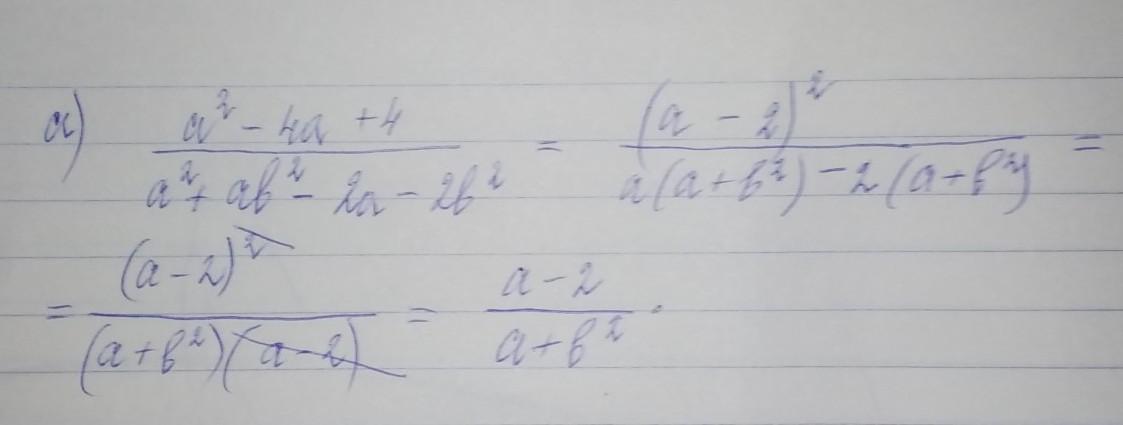 а) (a² - 4a + 4)/(a² + ab² - 2a - 2b²) = (a - 2)²/(a(a+b²) - 2(a+b²)) =
= (a-2)²/((a+b²)(a-2)) = (a-2)/(a+b²).